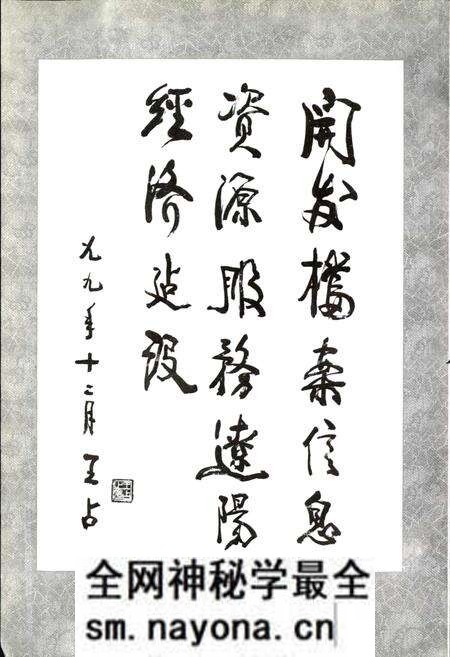 開发檔案信息
資源服務遼陽
經济建设
九九年十二月 王占
全网神秘学最全
sm.nayona.cn